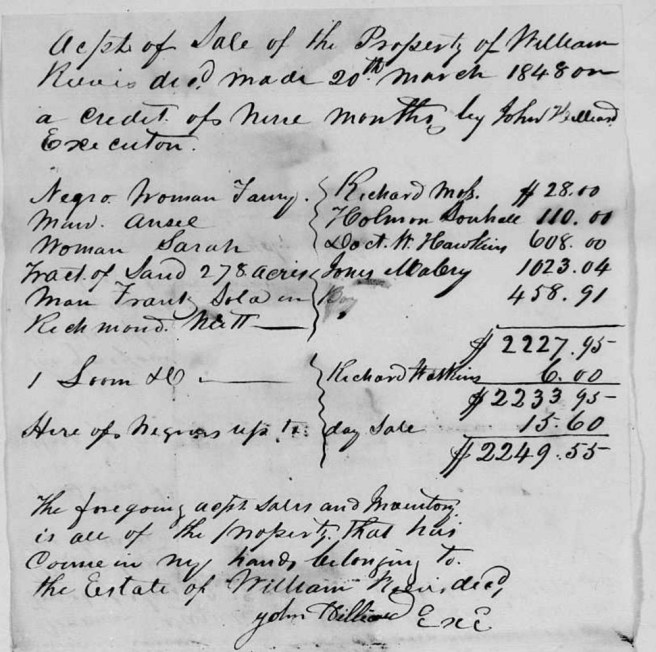 Acpt of Sale of the Property of William
decd made 20th March 1848 on
a credit of Nine months, by John
Executor.
Negro Woman Fanny. Richard $28.00
Ansel Holmon 110.00
Woman Sarah Doct. W. Hawkins 608.00
Tract of Land 278 acres Jones Mabry 1023.04
Man Frank Sold in 458.91
Richmond. Nett
$2227.95
1 Loom &C Richard Watkins 6.00
$2233.95
Hire of Negroes up to day Sale 15.60
$2249.55
The foregoing acpt Sales and Inventory
is all of the property that has
Come in my hands belonging to
the Estate of William decd,
John Exe